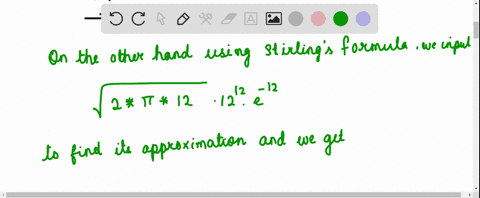 On the other hand using Stirling's formula. we input
√(2 * π * 12) · 12¹² · e⁻¹²
to find its approximation and we get